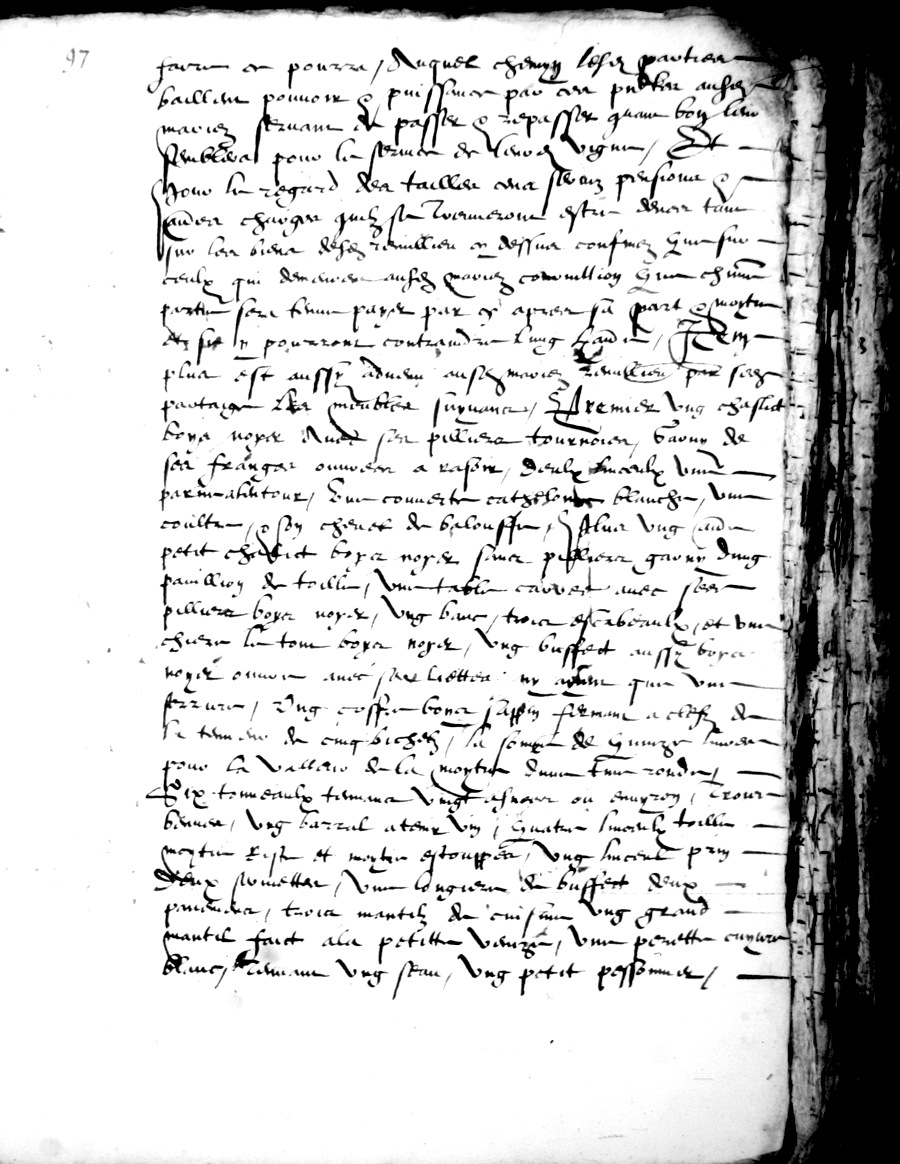 97
faire ce pourra / Auquel chemin lesd parties
baillent pouvoir & puissance par ces pntes ausd
mariez servant de passer & repasser quant bon leur
semblera pour le service de leurd vigne / Et
Pour le regard des tailles cens servis pensions &
aultres charges quilz se trouveront estre deues tant
sur les biens desd cy dessus confinez que sur
ceulx qui demeurent ausd mariez que chune
partie sera tenue payer par cy apres sa part & moytie
et se y pourront contraindre lung laultre / Item
plus est aussy advenu ausd mariez par sesd
partaige les meubles suyvans / Premier ung chaslict
boys noyer avec ses pilliers tournoies, garny de
ses franges ouvrees a rasoir, deulx linceulx une
une couverte cathelonne blanche, une
coultre, & son chevet de balouffe, Plus ung aultre
petit chaslict boys noyer sans pilliers garny dung
pavillion de toille, une table carree avec ses
pilliers boys noyer, ung banc, trois escabeaulx, et une
chiere le tout boys noyer, ung buffect aussy boys
noyer ouvre avec ses liettes ny ayant que une
serrure, Ung coffre boys sappin fermant a clefz de
la teneur de cinq bichetz, la somme de quinze livres
pour la valleur de la moytie dune tine ronde,
Six tonneaulx tenans vingt asnees ou environ, Trois
bennes, ung barral a tenir vin, quatre linceulx toille
moytie riste et moytie estouppes, ung linceul prin
deux serviettes, une longiere de buffect deux
trois mantilz de cuisine ung grand
mantil faict a la petitte venize, une cuyvre
blanc, tenant ung seau, ung petit pessonnier,